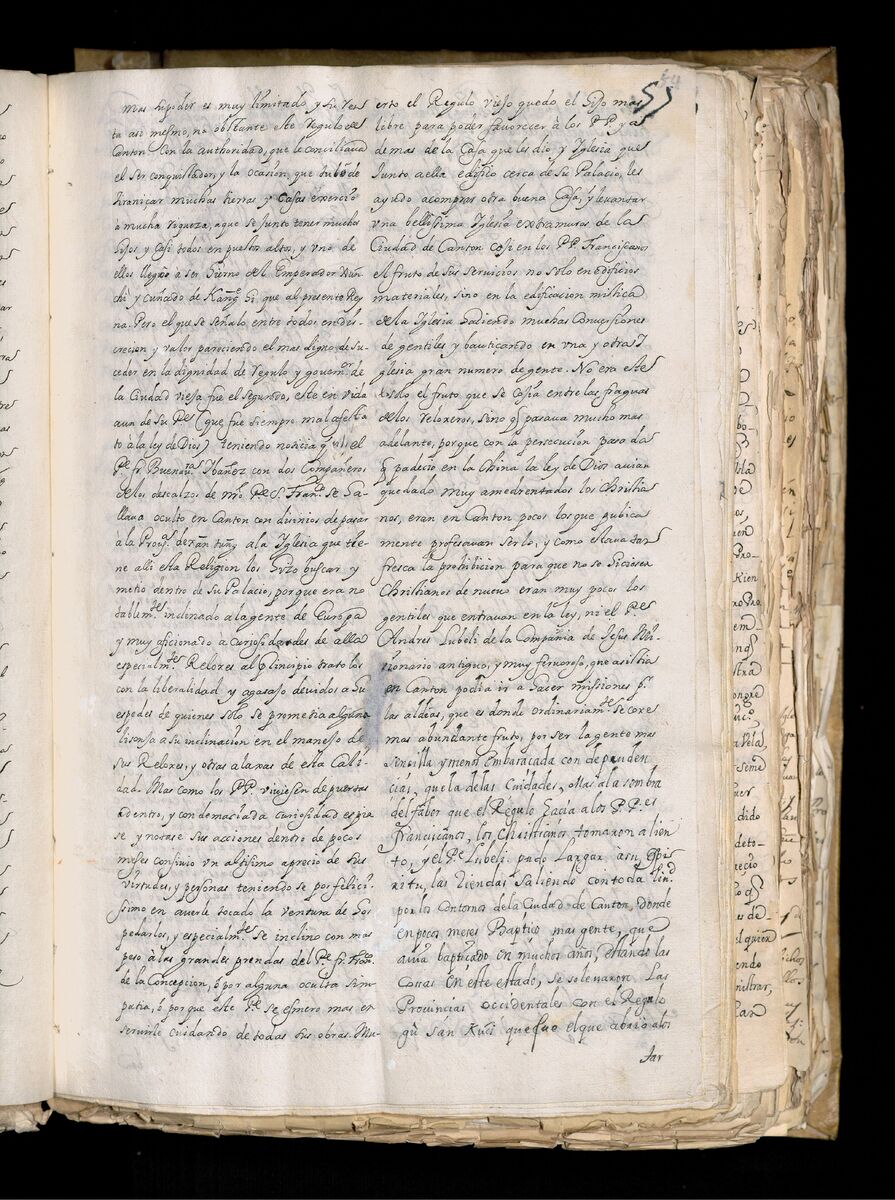 55
mas su poder es muy limitado, y su ren-
ta asi mesmo, no obstante este Regulo de
Canton con la authoridad, que le conciliava
el ser conquistador, y la ocasion, que tubo de
tiranicar muchas tierras y Casas
à mucha riqueza, a que se junto tener muchos
hijos y casi todos en puestos altos, y uno de
ellos llegò a ser Yerno del Emperador Xun
chi y cuñado de Kamg hi que al presente Rey
na. Pero el que se señalo entre todos en dis-
crecion y valor pareciendo el mas digno de su
ceder en la dignidad de Regulo y govierno de
la Ciudad vieja fue el segundo, este en vida
aun de su Pe (que fue siempre mal afec
to à la ley de Dios) teniendo noticia q el
Pe. fr. Buenava. Ybañez con dos Compañeros
de los descalzos de nro Pe S. Franco. se ha-
llava oculto en Canton con disinios de pasar
a la Prova. de Xan tung a la Yglesia que tie-
ne alli esta Religion los hizo buscar y
metio dentro de su Palacio, porque era no
tablemte. inclinado a la gente de Europa
y muy aficionado a curiosidades de alla
especialmte. Relores al principio trato los
con la liberalidad y agasajo devidos a hu
espedes de quienes solo se prometia alguna
lisonja a su inclinacion en el manejo de
sus Relores, y otras alaxas de esta Cali-
dad. Mas como los PP. viviesen de puertas
adentro, y con demaciada curiosidad espia
se y notase sus acciones dentro de pocos
meses consivio un altisimo aprecio de sus
virtudes, y personas teniendo se por felici-
ssimo en averle tocado la ventura de hos
pedarlos, y especialmte. se inclino con mas
peso à las grandes prendas del Pe. fr. Franco.
de la Concepcion, ò por alguna oculta sim
patia, ò por que este Pe. se esmero mas en
servirle cuidando de todas sus obras. Mu-
erto el Regulo viejo quedo el hijo mas
libre para poder favorecer à los PP. y a
demas de la Casa que les dio, y Yglesia que
junto a ella edificò cerca de su Palacio, les
ayudo a comprar otra buena Casa, y levantar
vna bellissima Yglesia extramuros de la
Ciudad de Canton cojien los PP. Franciscanos
el fruto de sus servicios no solo en edificios
materiales, sino en la edificacion mistica
de la Yglesia haciendo muchas Conversiones
de gentiles y bautiçando en vna y otra Y
glesia gran numero de gente. No era este
solo el fruto que se cojia entre las fraguas
de los Reloxeros, sino q pasava mucho mas
adelante, porque con la persecucion pasada
q padecio en la China la ley de Dios avian
quedado muy amedrentados los Christia
nos, eran en Canton pocos los que publica
mente profesavan serlo, y como estava tan
fresca la prohibicion para que no se hiciesen
Christianos de nuevo eran muy pocos los
gentiles que entravan en la ley, ni el Pe
Andres Lubeli de la Compañia de Jesus Mi-
sionario antiguo, y muy fervoroso, que asistia
en Canton podia ir a hacer missiones pr.
las aldeas, que es donde ordinariamte. se coxe
mas abundante fruto, por ser la gente mas
sencilla y menos embaraçada con dependen
cias, que la de las Ciudades, Mas à la sombra
del fabor que el Regulo hacia a los PPes
Franciscanos, los Christianos tomaron alien
to, y el Pe Lubeli pudo Largar à su Espi
ritu, las riendas saliendo con toda
por los Contornos de la Ciudad de Canton, donde
en pocos meses Baptiço mas gente, que
avia baptiçado en muchos años, estando las
Cosas en este estado, se solevaron Las
Provincias occidentales con el Regulo
gù San Kuei que fue el que abrio a los
Tar